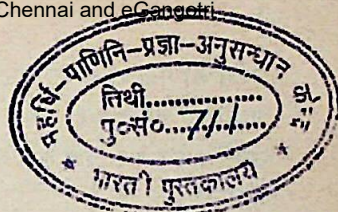 Chennai and eGangotri
महर्षि-पाणिनि-प्रज्ञा-अनुसन्धान केन्द्र
तिथी..................
पु०सं०....711....
* भारती पुस्तकालय *